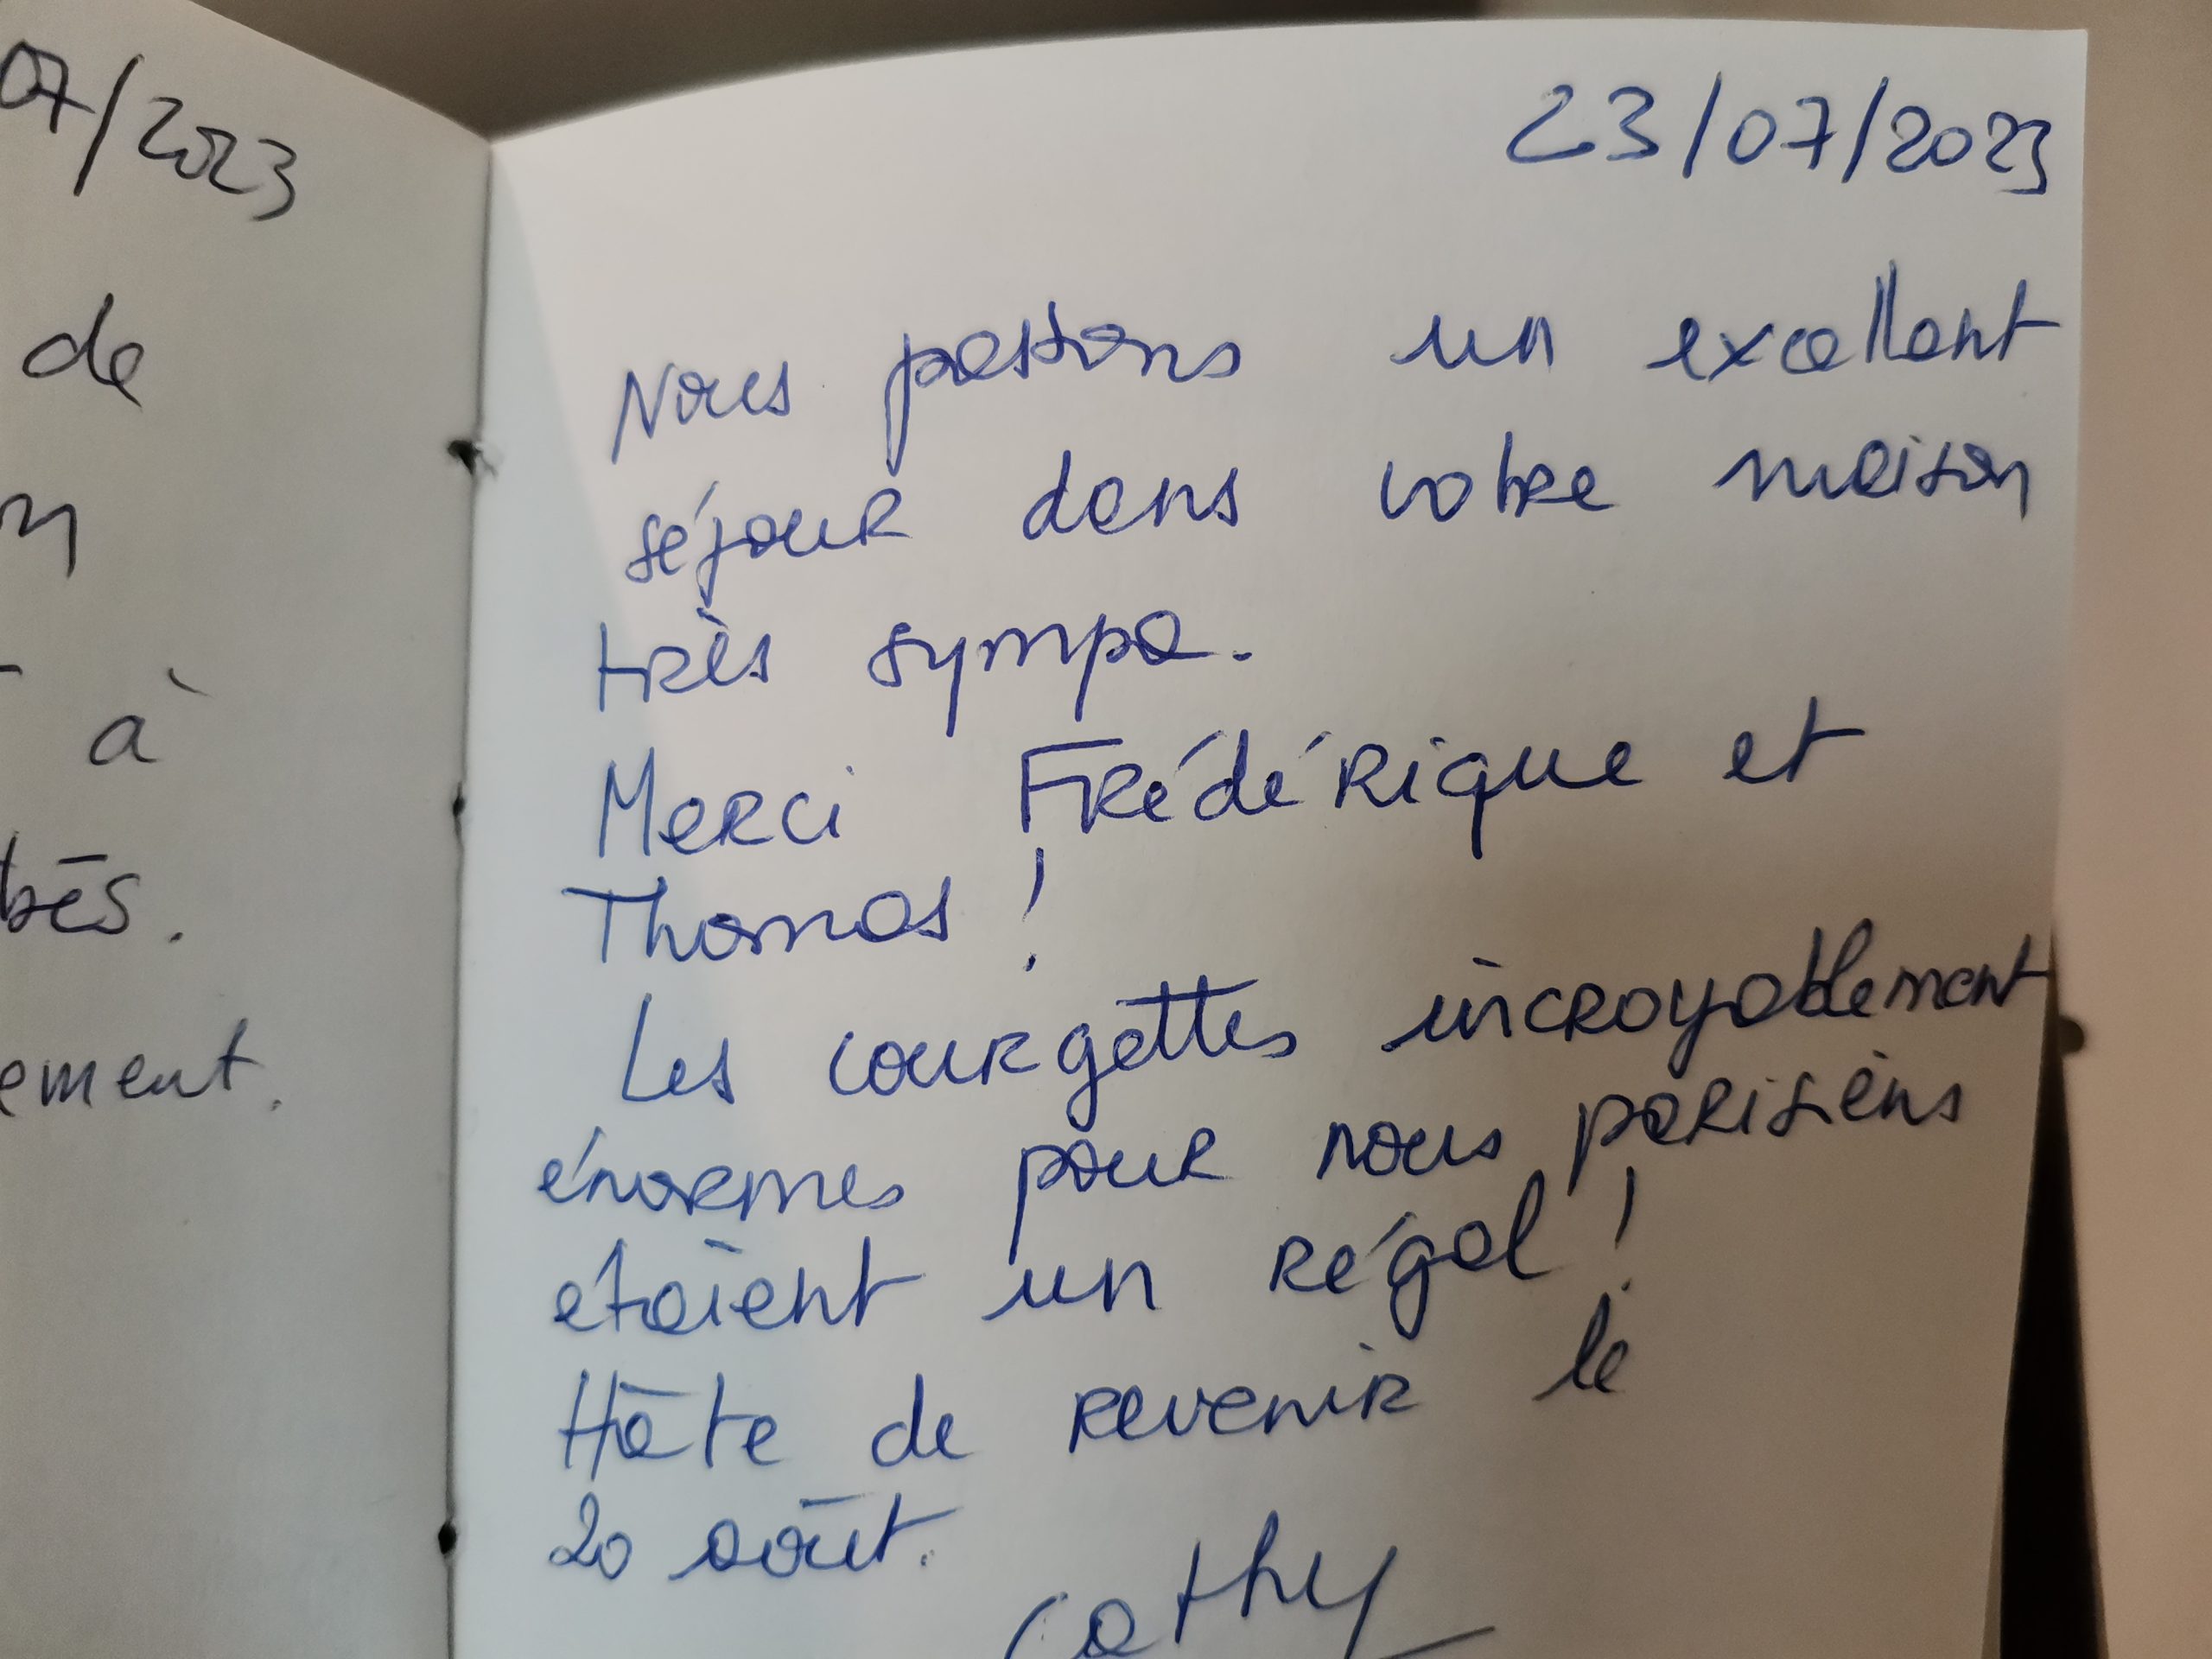 07/2023
de
à
bés.
ement.
23/07/2023
Nous passons un excellent
séjour dans votre maison
très sympa.
Merci Frédérique et
Thomas !
Les courgettes incroyablement
énormes pour nous parisiens
etaient un régal !
Hâte de revenir le
20 août.
Cathy